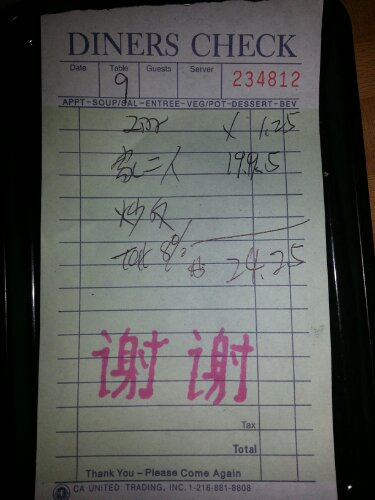 DINERS CHECK
Date Table Guests Server
9 234812
APPT-SOUP/SAL-ENTREE-VEG/POT-DESSERT-BEV
X 1.25
二人 19.95
炒
tax 8% $ 24.25
谢谢
Tax
Total
Thank You – Please Come Again
CA UNITED TRADING, INC. 1-216-881-8808